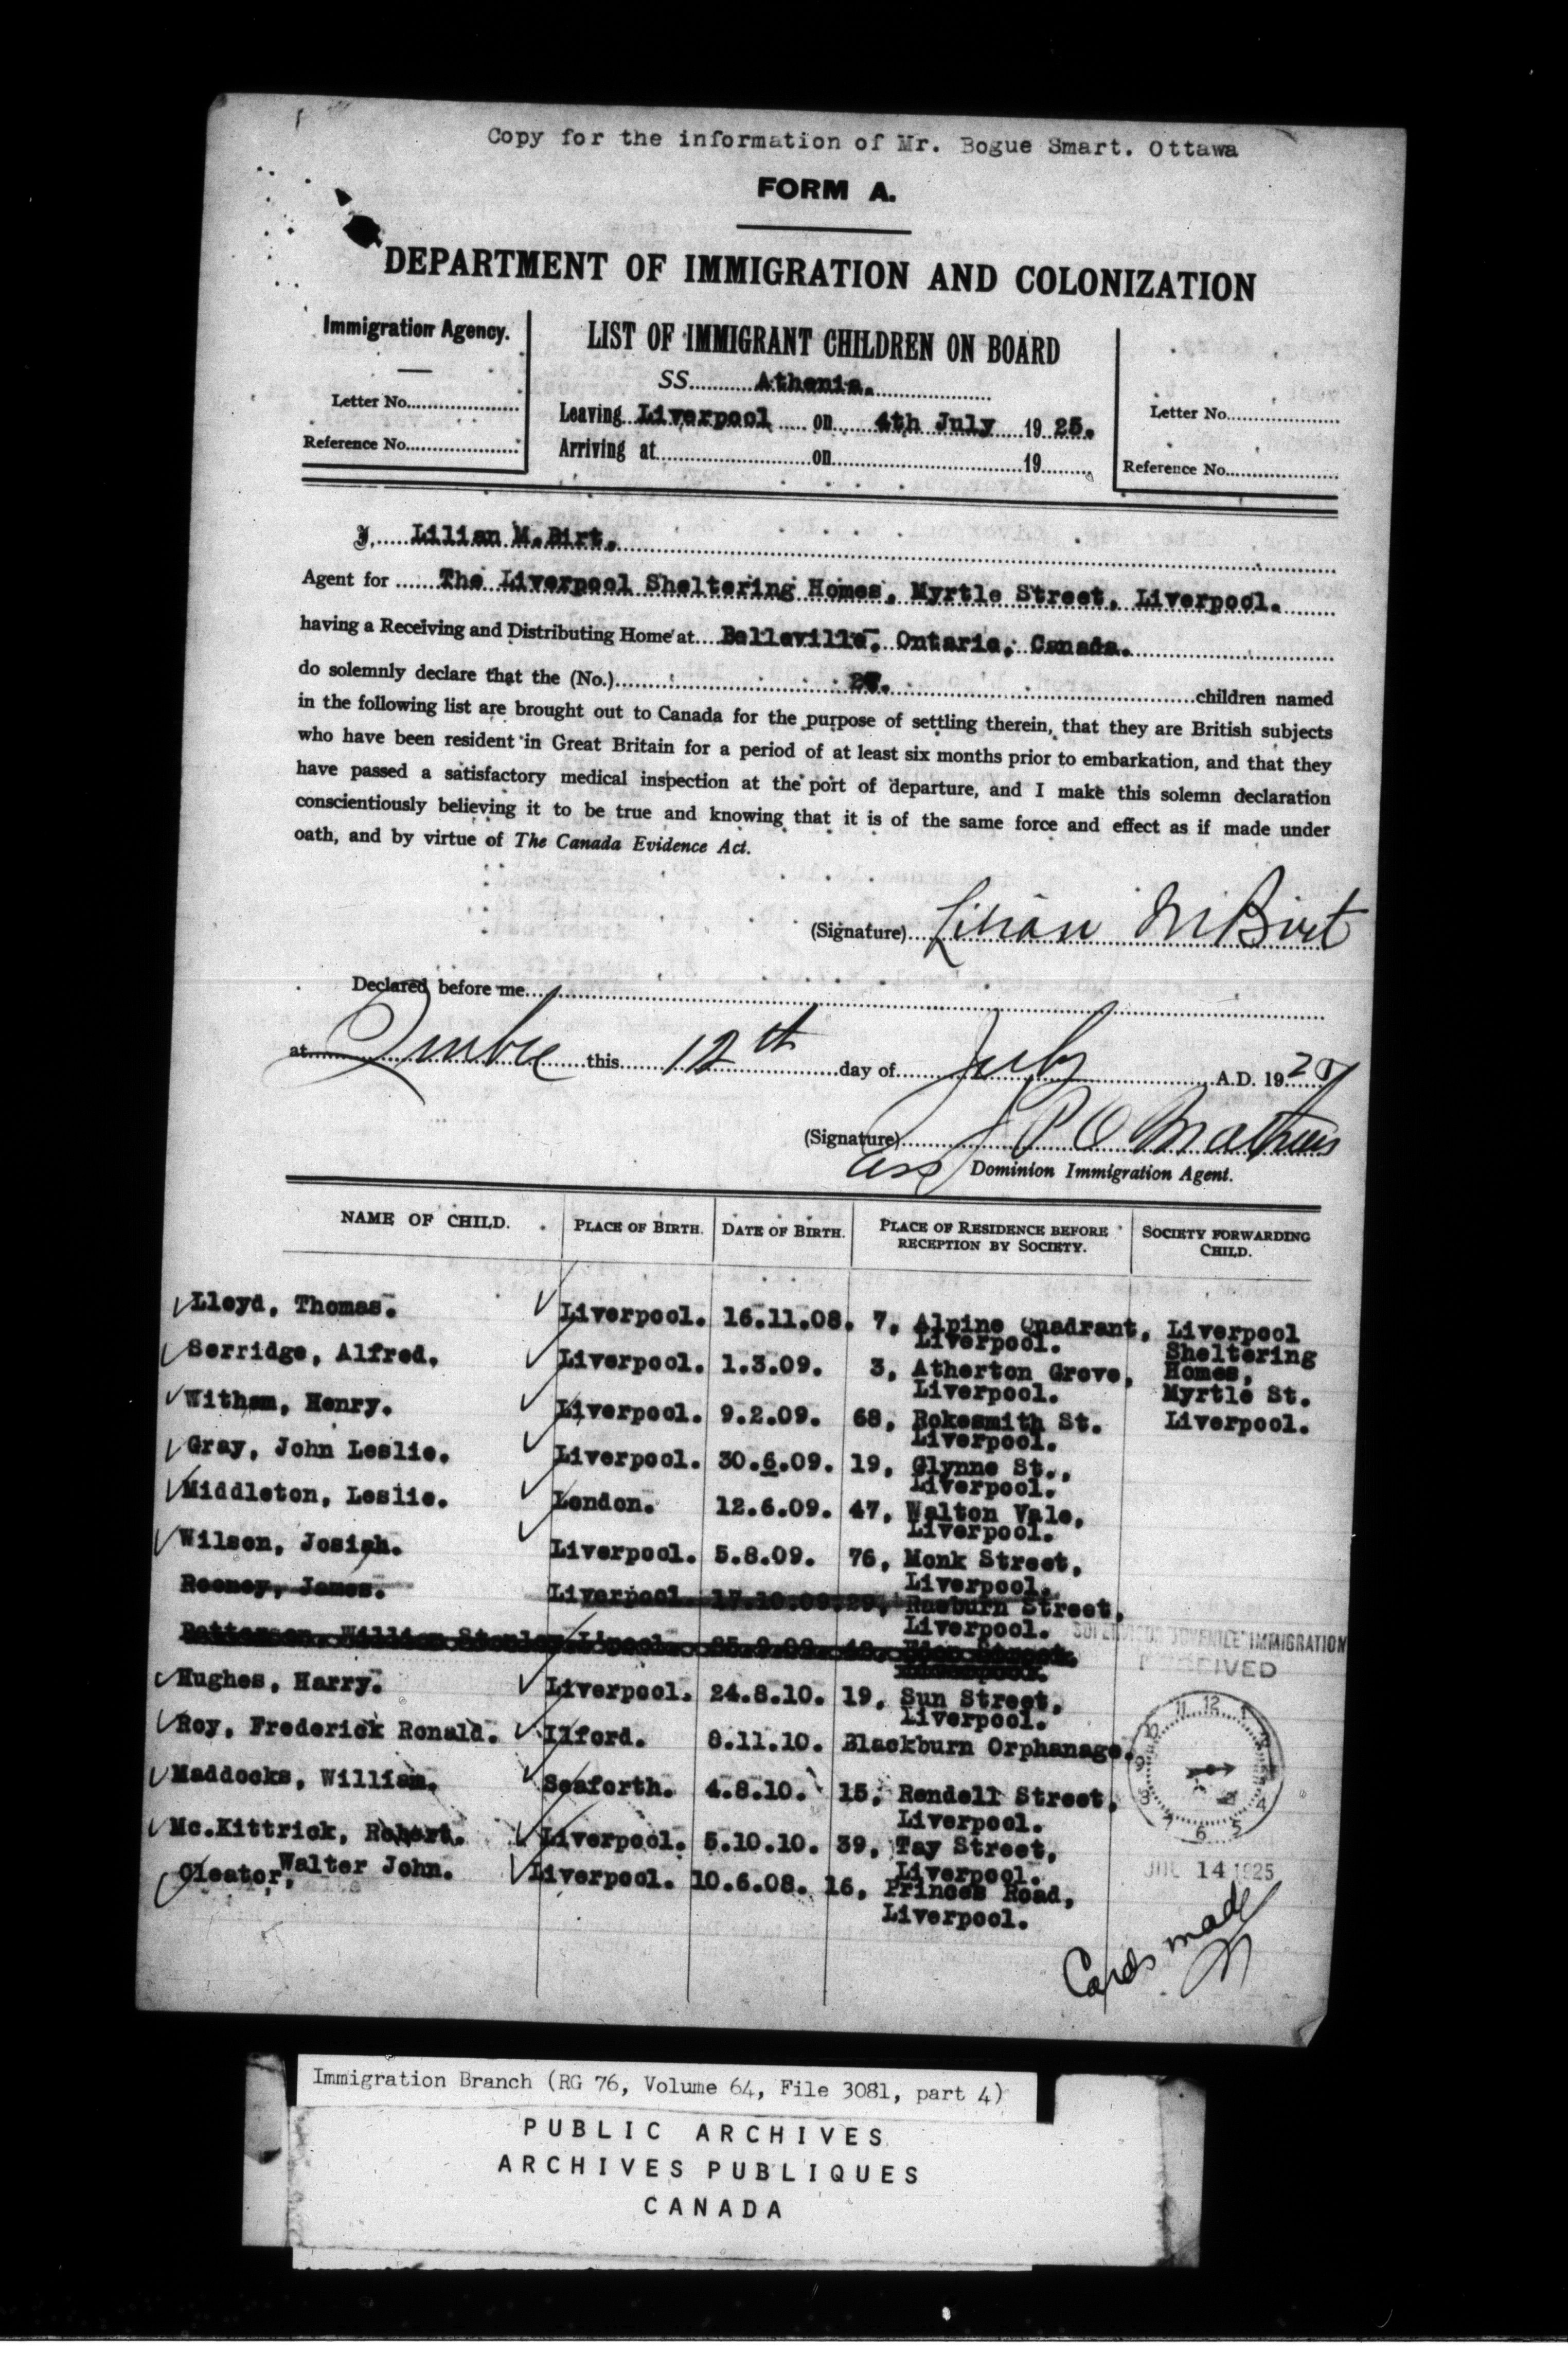 Copy for the information of Mr. Bogue Smart. Ottawa
FORM A.
DEPARTMENT OF IMMIGRATION AND COLONIZATION
Immigration Agency.
Letter No.
Reference No.
LIST OF IMMIGRANT CHILDREN ON BOARD
SS. Athenia.
Leaving Liverpool on 4th July 19 25.
Arriving at on 19
Letter No.
Reference No.
I, Lilian M. Birt.
Agent for The Liverpool Sheltering Homes, Myrtle Street, Liverpool.
having a Receiving and Distributing Home at Belleville, Ontario, Canada.
do solemnly declare that the (No.) 27. children named
in the following list are brought out to Canada for the purpose of settling therein, that they are British subjects
who have been resident in Great Britain for a period of at least six months prior to embarkation, and that they
have passed a satisfactory medical inspection at the port of departure, and I make this solemn declaration
conscientiously believing it to be true and knowing that it is of the same force and effect as if made under
oath, and by virtue of The Canada Evidence Act.
(Signature) Lilian M Birt
Declared before me
at Quebec this 12th day of July A.D. 19 25
(Signature) J P O Mathews
Ass Dominion Immigration Agent.
NAME OF CHILD. PLACE OF BIRTH. DATE OF BIRTH. PLACE OF RESIDENCE BEFORE RECEPTION BY SOCIETY. SOCIETY FORWARDING CHILD.
Lloyd, Thomas. Liverpool. 16.11.08. 7, Alpine Quadrant, Liverpool
Liverpool. Sheltering
Serridge, Alfred. Liverpool. 1.3.09. 3, Atherton Grove, Homes,
Liverpool. Myrtle St.
Witham, Henry. Liverpool. 9.2.09. 68, Rokesmith St. Liverpool.
Liverpool.
Gray, John Leslie. Liverpool. 30.6.09. 19, Glynne St.,
Liverpool.
Middleton, Leslie. London. 12.6.09. 47, Walton Vale,
Liverpool.
Wilson, Josiah. Liverpool. 5.8.09. 76, Monk Street,
Liverpool.
Rooney, James. Liverpool. 17.10.09. 29, Raeburn Street,
Liverpool.
Patterson, William Stanley. L'pool.
SUPERVISOR JUVENILE IMMIGRATION
RECEIVED
Hughes, Harry. Liverpool. 24.8.10. 19, Sun Street,
Liverpool.
Roy, Frederick Ronald. Ilford. 8.11.10. Blackburn Orphanage.
Maddocks, William. Seaforth. 4.8.10. 15, Rendell Street,
Liverpool.
Mc.Kittrick, Robert. Liverpool. 5.10.10. 39, Tay Street,
Liverpool.
Cleator, Walter John. Liverpool. 10.6.08. 16, Princes Road,
Liverpool.
JUL 14 1925
Cards made
Immigration Branch (RG 76, Volume 64, File 3081, part 4)
PUBLIC ARCHIVES
ARCHIVES PUBLIQUES
CANADA